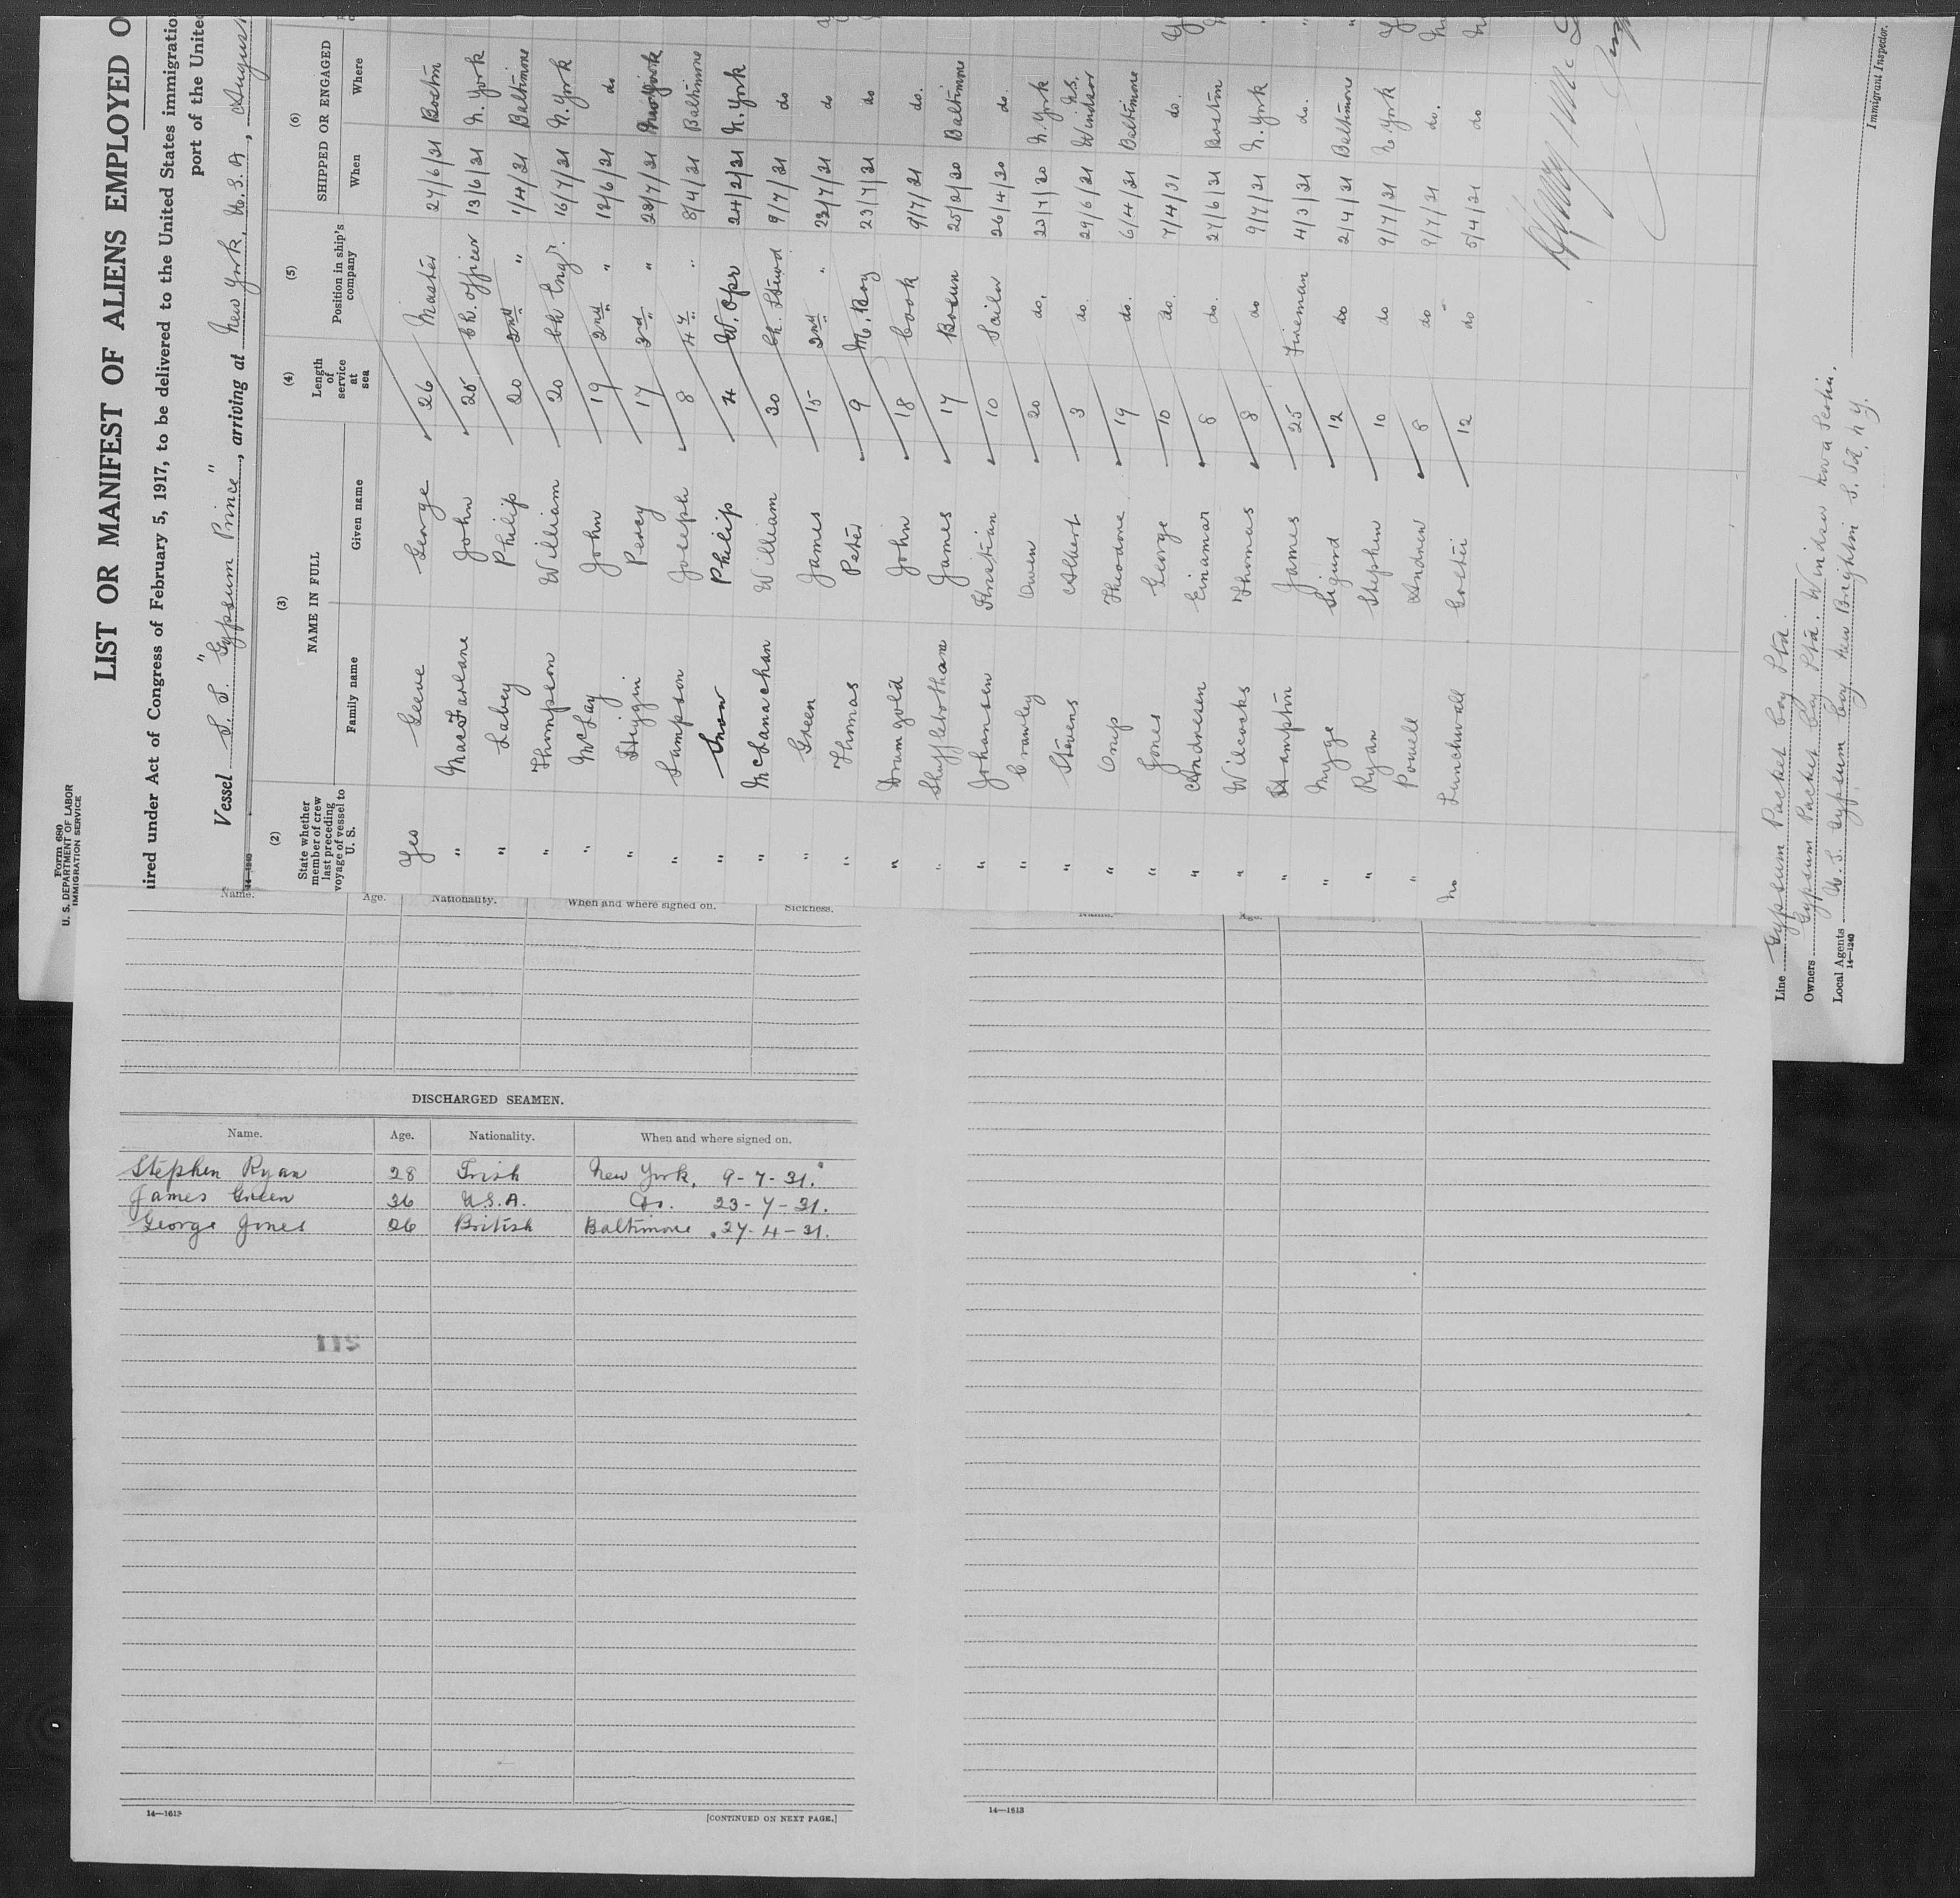 Form 680
U. S. DEPARTMENT OF LABOR
IMMIGRATION SERVICE
LIST OR MANIFEST OF ALIENS EMPLOYED O
ired under Act of Congress of February 5, 1917, to be delivered to the United States immigratio
port of the United
Vessel S. S. "Gypsum Prince", arriving at New York, U.S.A, August
14—1240
(2) (3) (4) (5) (6)
State whether member of crew last preceding voyage of vessel to U. S. NAME IN FULL Length of service at sea Position in ship's company SHIPPED OR ENGAGED
Family name Given name When Where
Yes Geeve George 26 Master 27/6/21 Boston
" MacFarlane John 25 Ch. Officer 13/6/21 N. York
" Labey Philip 20 2nd " 1/4/21 Baltimore
" Thompson William 20 Ch Engr. 16/7/21 N. York
" McLay John 19 2nd " 12/6/21 do
" Higgin Percy 17 3rd " 23/7/21 New York
" Sampson Joseph 8 4th " 8/4/21 Baltimore
" Snow Philip 4 W. Opr 24/2/21 N. York
" McLanachan William 20 Ch. Stewd 9/7/21 do
" Green James 15 2nd " 23/7/21 do
" Thomas Peter 9 M. Boy 23/7/21 do
" Dramgold John 18 Cook 9/7/21 do.
" Shufflebotham James 17 Bosun 25/2/20 Baltimore
" Johansen Kristian 10 Sailor 26/4/20 do.
" Crawley Owen 20 do. 23/7/20 N. York
" Stevens Albert 3 do. 29/6/21 Windsor N.S.
" Onip Theodore 19 do. 6/4/21 Baltimore
" Jones George 10 do. 7/4/21 do.
" Andresen Einamar 8 do. 27/6/21 Boston
" Wilcocks Thomas 8 do 9/7/21 N. York
" Hampton James 25 Fireman 4/3/21 do.
" Myge Sigurd 12 do 2/4/21 Baltimore
" Ryan Stephen 10 do 9/7/21 N. York
" Powell Andrew 8 do 9/7/21 do.
No Lunchwall Gosta 12 do 5/4/21 do
Immigrant Inspector.
Line Gypsum Packet Coy Ltd.
Owners Gypsum Packet Coy Ltd. Windsor Nova Scotia.
Local Agents U.S. Gypsum Coy New Brighton S. Id. N.Y.
14—1240
Name. Age. Nationality. When and where signed on. Sickness.
DISCHARGED SEAMEN.
Name. Age. Nationality. When and where signed on.
Stephen Ryan 28 Irish New York, 9-7-21.
James Green 36 U.S.A. Do. 23-7-21.
George Jones 26 British Baltimore 27-4-21.
14—1613
[CONTINUED ON NEXT PAGE.]
14—1613